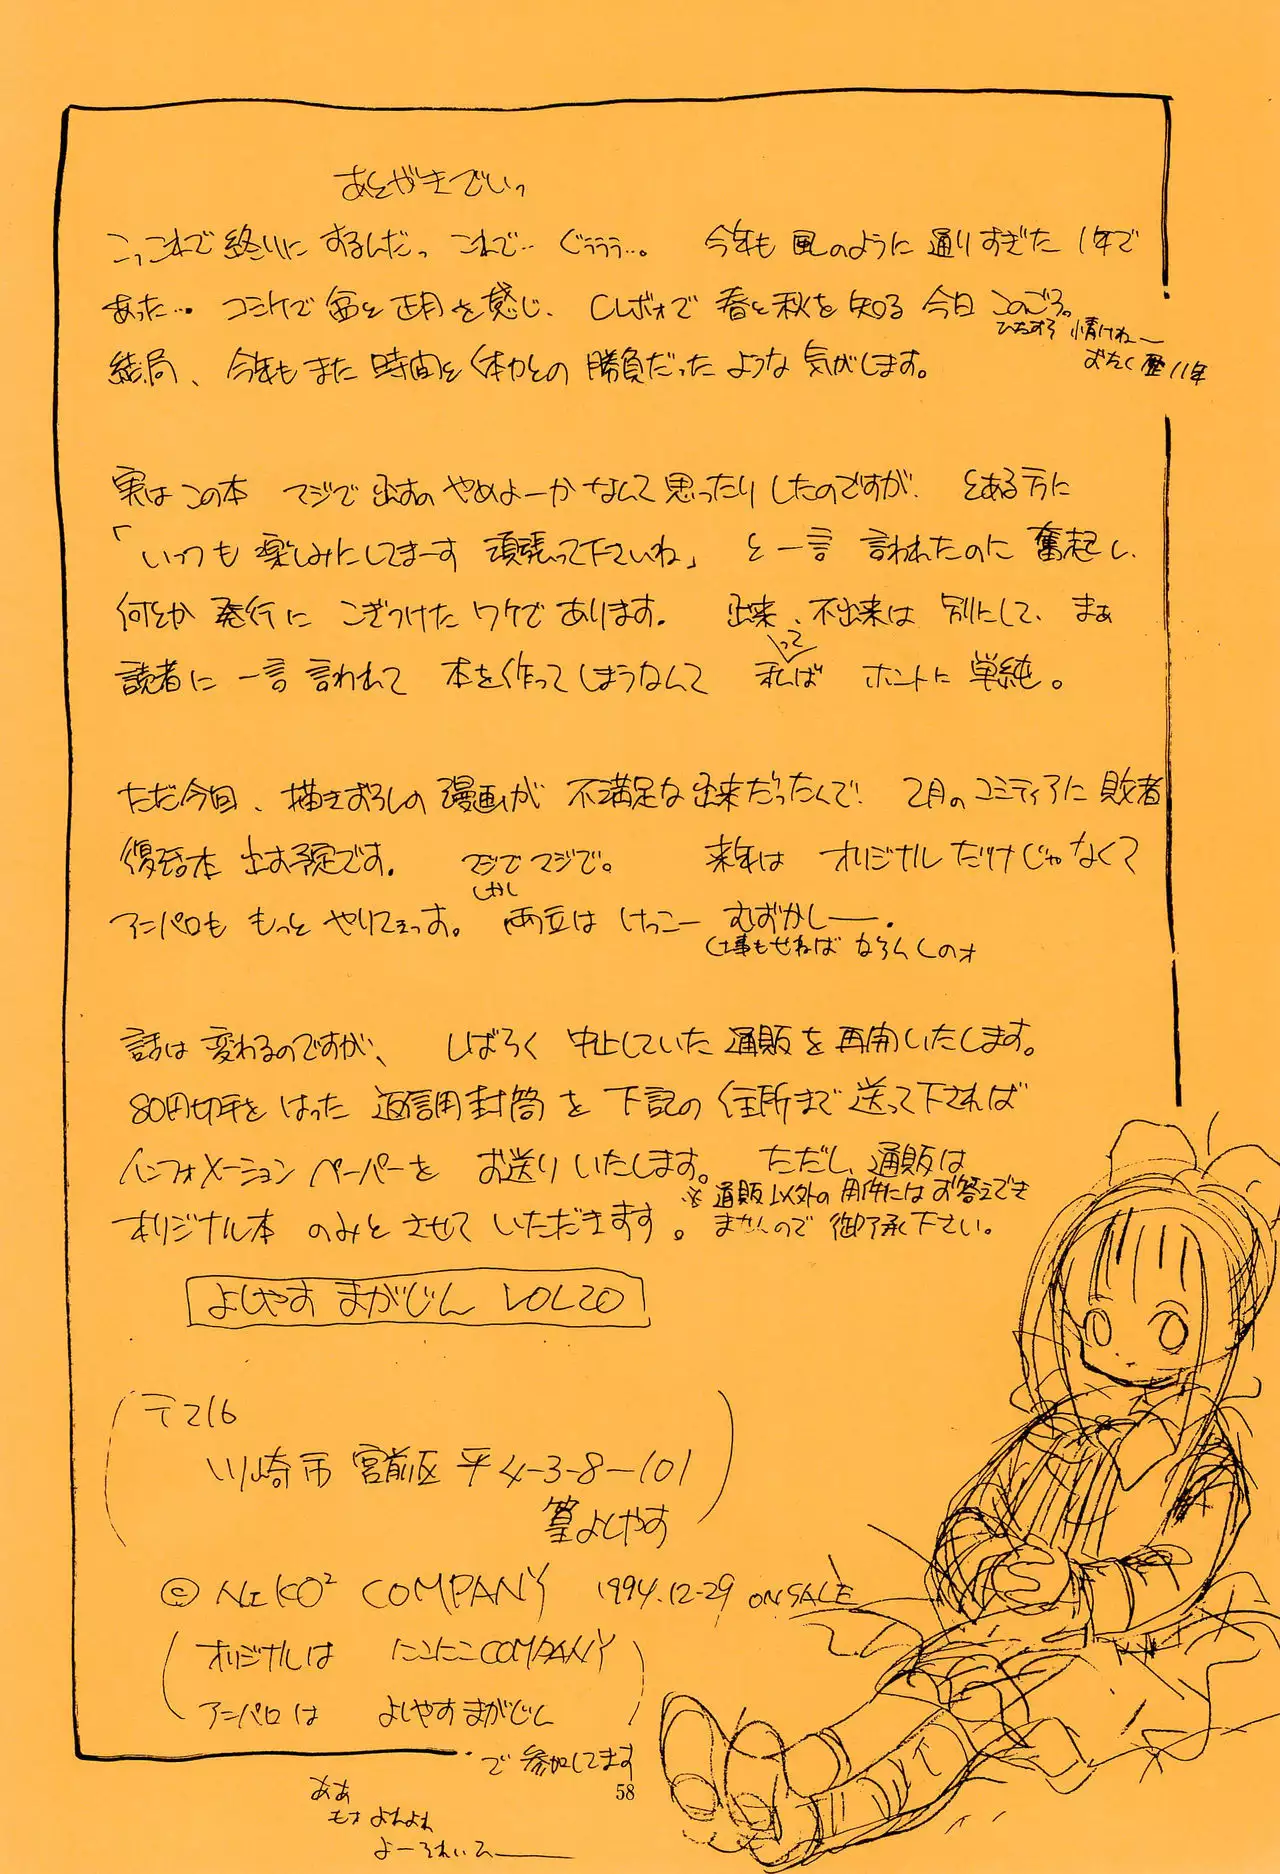 あとがきでいっ
こっこれで終りにするんだっ これで… ぐぅぅぅ…。 今年も風のように通りすぎた1年で
あった… コミケで盆と正月を感じ、Cレボォで春と秋を知る今日このごろ。
ひたすら情けねー
おたく歴11年
結局、今年もまた時間と体力との勝負だったような気がします。
実はこの本 マジで出すのやめよーかなんて思ったりしたのですが、とある方に
「いつも楽しみにしてまーす 頑張って下さいね」と一言 言われたのに奮起し、
何とか発行に こぎつけたワケであります。 出来、不出来は別にして、まぁ
読者に一言 言われて 本を作ってしまうなんて 私ってば ホントに単純。
ただ今回、描きおろしの漫画が 不満足な出来だったんで、2月のコミティアに敗者
復活本 出す予定です。 マジでマジで。 来年は オリジナルだけじゃなくて
アニパロも もっと やりてぇっす。 しかし両立は けっこー むずかしーー。
仕事もせねば ならんしのォ
話は変わるのですが、 しばらく 中止していた通販を再開いたします。
80円切手を はった 返信用封筒を 下記の 住所まで送って下されば
インフォメーション ペーパーを お送りいたします。 ただし、通販は
オリジナル本 のみと させて いただきます。
※通販以外の用件にはお答えでき
ませんので 御了承下さい。
よしやす まがじん VOL20
〒216
川崎市 宮前区 平4-3-8-101
篁よしやす
© NIKO² COMPANY 1994.12-29 ON SALE
オリジナルは にこにこCOMPANY
アニパロは よしやすまがじん
で 参加してます
58
ああ
もォ よれよれ